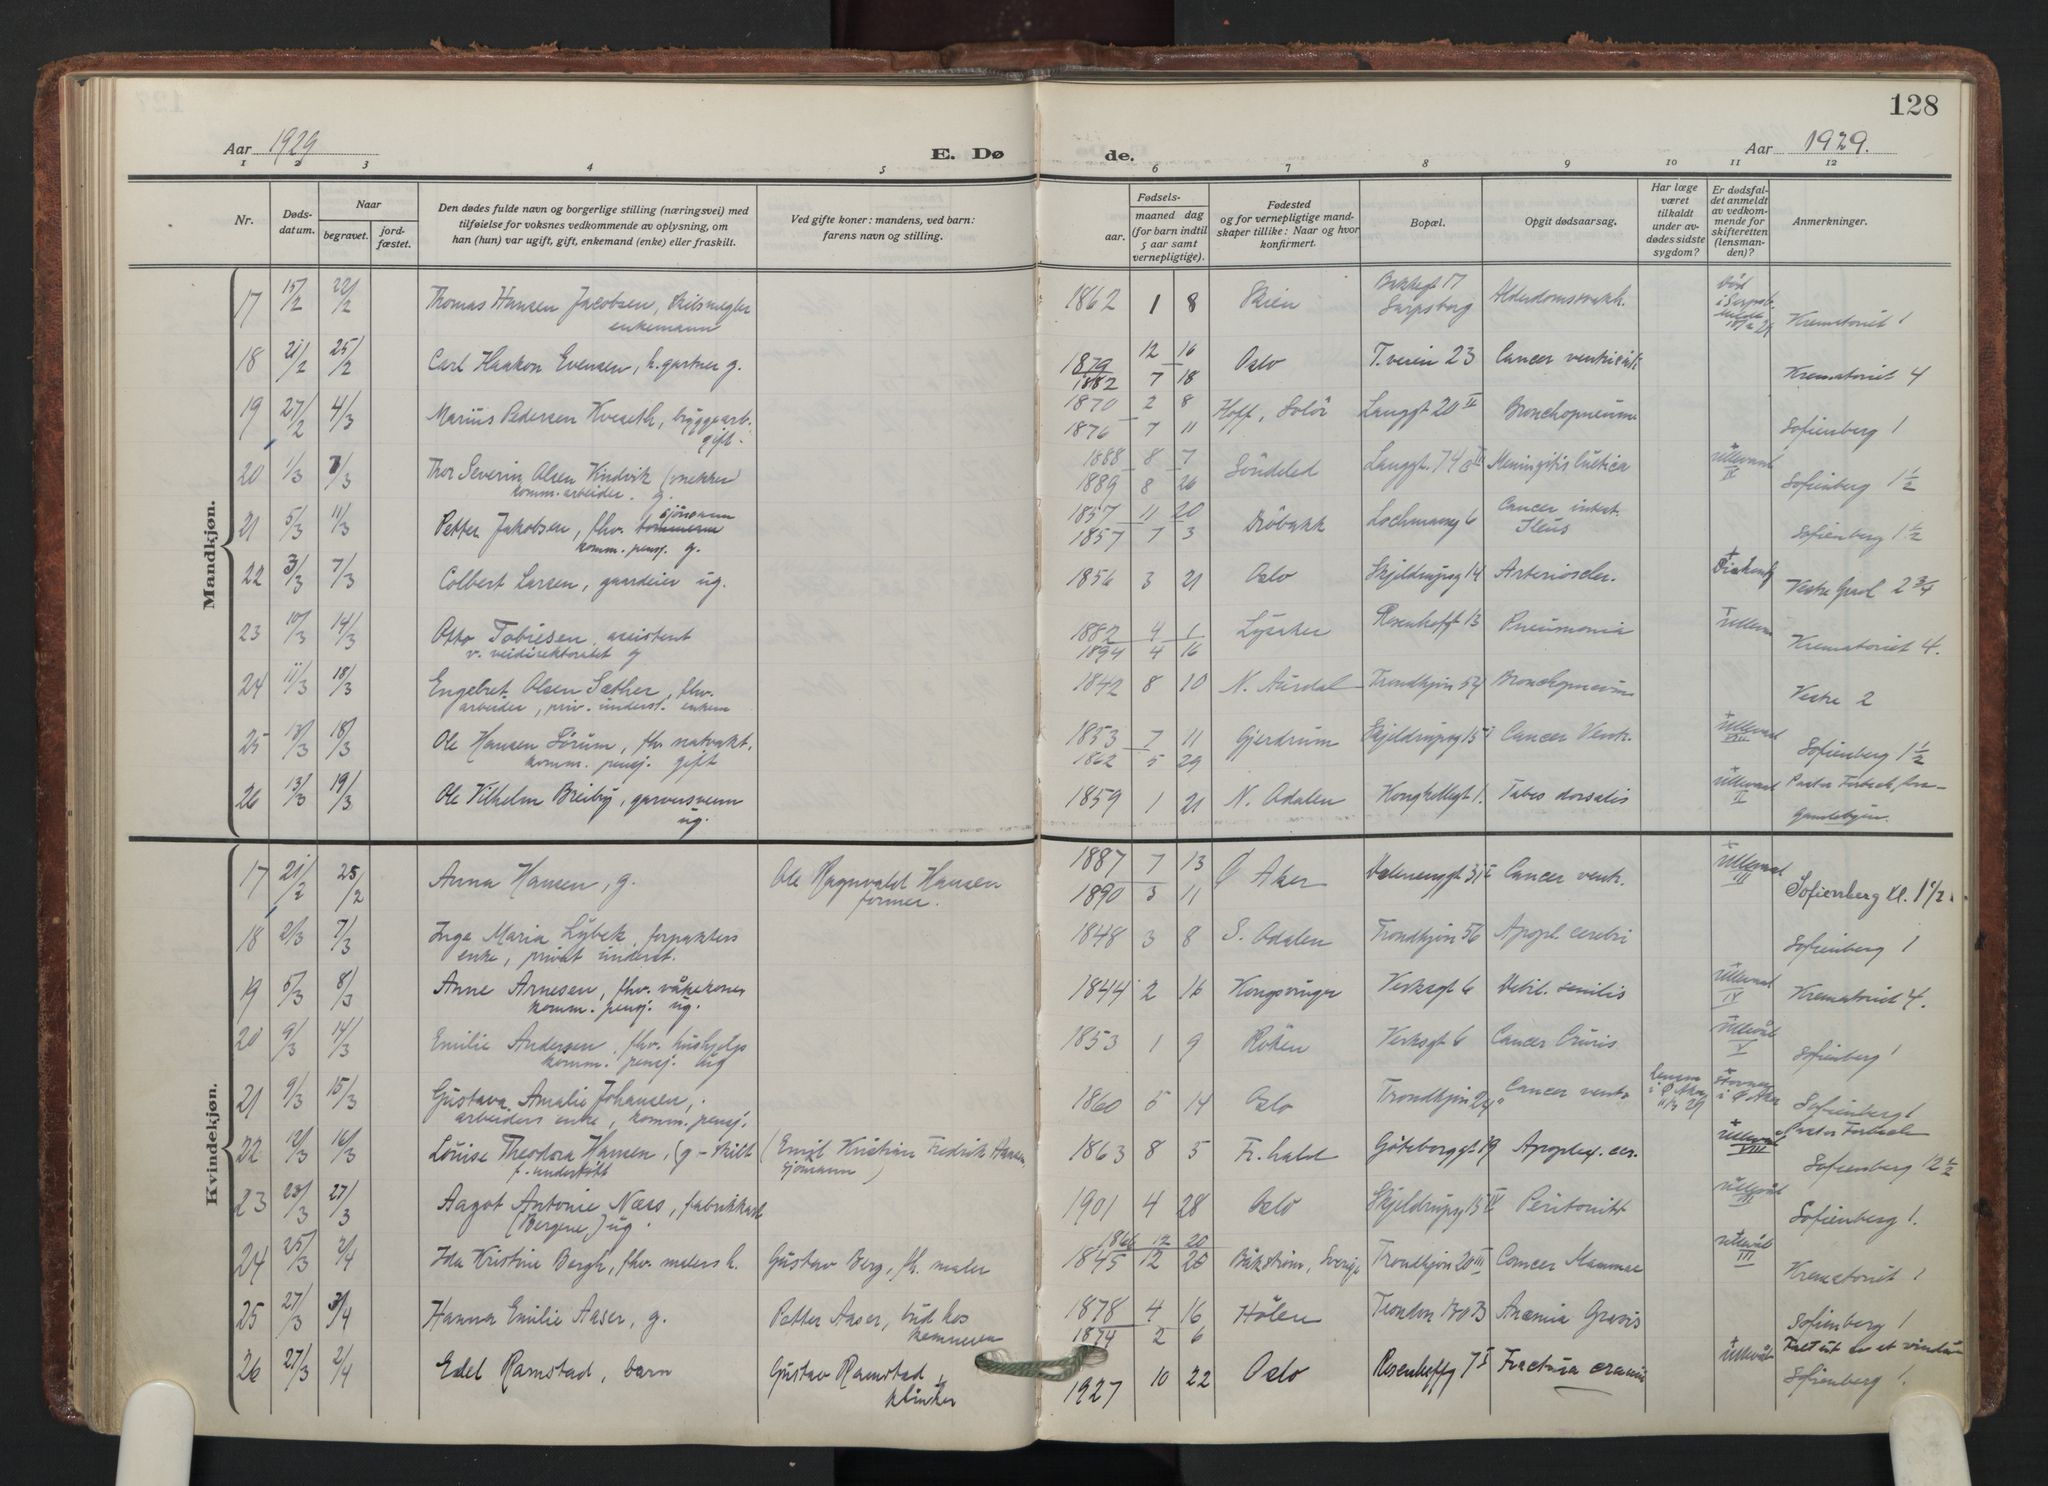 128
Aar 1929 E. Døde. Aar 1929.
1 2 3 4 5 6 7 8 9 10 11 12
Nr.
Døds-
datum.
Naar
begravet.
jord-
fæstet.
Den dødes fulde navn og borgerlige stilling (næringsvei) med
tilføielse for voksnes vedkommende av oplysning, om
han (hun) var ugift, gift, enkemand (enke) eller fraskilt.
Ved gifte koner: mandens, ved barn:
farens navn og stilling.
Fødsels-
aar.
maaned dag
(for barn indtil
5 aar samt
vernepligtige).
Fødested
og for vernepligtige mand-
skaper tillike: Naar og hvor
konfirmert.
Bopæl.
Opgit dødsaarsag.
Har læge
været
tilkaldt
under av-
dødes sidste
sygdom?
Er dødsfal-
det anmeldt
av vedkom-
mende for
skifteretten
(lensman-
den)?
Anmerkninger.
Mandkjøn.
17 15/2 22/2 Thomas Hansen Jacobsen, skibsmegler 1862 1 8 Skien
enkemann Sarpsborg Krematoriet 1
18 21/2 25/2 Carl Haakon Evensen, h. gartner g. 1879 12 16 Oslo T.veien 23 Cancer ventriculi
1882 7 18 Krematoriet 4
19 27/2 4/3 Marius Pedersen Kveseth, byggearb. 1870 2 8 Hoff, Solör Langgt 20 II Bronchopneum.
gift. 1876 7 11 Sofienberg 1
20 1/3 7/3 Thor Severin Olsen Vindvik (snekker 1888 8 7 Söndeled Langgt. Meningitis luetica Ullevaal IV
komm. arbeider. g. 1889 8 26 Sofienberg 1 1/2
21 5/3 11/3 Petter Jakobsen, fhv. sjömann 1857 11 20 Dröbakk Lochmansg 6 Cancer intest.
komm. pensj. g. 1857 7 3 Ileus Sofienberg 1 1/2
22 3/3 7/3 Colbert Larsen, gaardeier ug. 1856 3 21 Oslo Skjeldrupsg 14 Arterioscler. Vestre Gravl 2 3/4
23 10/3 14/3 Otto Tobiesen, assistent 1882 4 1 Lysaker Rosenhofgt 13 Pneumonia
v. veidirektoratet g 1894 4 16 Krematoriet 4.
24 11/3 18/3 Engebret Olsen Sæther, fhv. 1842 8 10 N. Aurdal Trondhjvn 54 Bronchopneum
arbeider, priv. underst. enkem Vestre 2
25 13/3 18/3 Ole Hansen Sörum, fhv. natvakt, 1853 7 11 Gjerdrum Skjeldrupsg 15 Cancer Ventr. Ullevaal VIII
komm. pensj. gift 1862 5 29 Sofienberg 1 1/2
26 13/3 19/3 Ole Vilhelm Breiby, garversvenn 1859 1 21 N. Odalen Tabes dorsalis Ullevaal II
ug. Gamlebyen.
Kvindekjøn.
17 21/2 25/2 Anna Hansen, g. Ole Ragnvald Hansen 1887 7 13 Ø Aker Cancer ventr. Ullevaal III
former. 1890 3 11 Sofienberg kl. 1 1/2
18 2/3 7/3 Inga Maria Lybek, forpakters 1848 3 8 S. Odalen Trondhjvn 56 Apopl. cerebri
enke, privat underst. Sofienberg 1
19 5/3 8/3 Anne Arnesen, fhv. våkekone 1844 2 16 Kongsvinger Verksgt 6 Debil. senilis Ullevaal IV
komm. pensj. ug. Krematoriet 4.
20 9/3 14/3 Emilie Andersen, fhv. hushjelp 1853 1 9 Röken Verksgt 6 Cancer Cruris Ullevål V
komm. pensj. ug Sofienberg 1
21 9/3 15/3 Gustava Amalie Johansen, 1860 5 14 Oslo Trondhjvn 24 Cancer ventr
arbeiders enke, komm. pensj. Sofienberg 1
22 12/3 16/3 Louise Theodora Hansen, (g - skilt (Emil Kristian Fredrik Hansen, 1863 8 5 Fr.hald Göteborggt 19 Apoplex. cer. Ullevaal VIII
f. understött sjömann) Sofienberg 12 1/2
23 23/3 27/3 Aagot Antonie Næss, fabrikkarb 1901 4 28 Oslo Skjeldrupsg 15 IV Peritonitt Ullevål
(Bergene) ug. Sofienberg 1.
24 25/3 2/4 Ida Kristine Bergh, fhv. malers h. Gustav Berg, fh. maler 1866 12 20
1845 12 20 Båkström, Sverige Trondhjvn 20 III Cancer Mammae Ullevål III
Krematoriet 1
25 27/3 3/4 Hanna Emilie Aaser, g. Petter Aaser, bud hos 1878 4 16 Hölen Anæmia Gravis
kemneren 1874 2 6 Sofienberg 1
26 27/3 2/4 Edel Ramstad, barn Gustav Ramstad 1927 10 22 Oslo Rosenhoffg 7 I Fractura cranii Ullevål Falt ut av et vindu
Sofienberg 1.